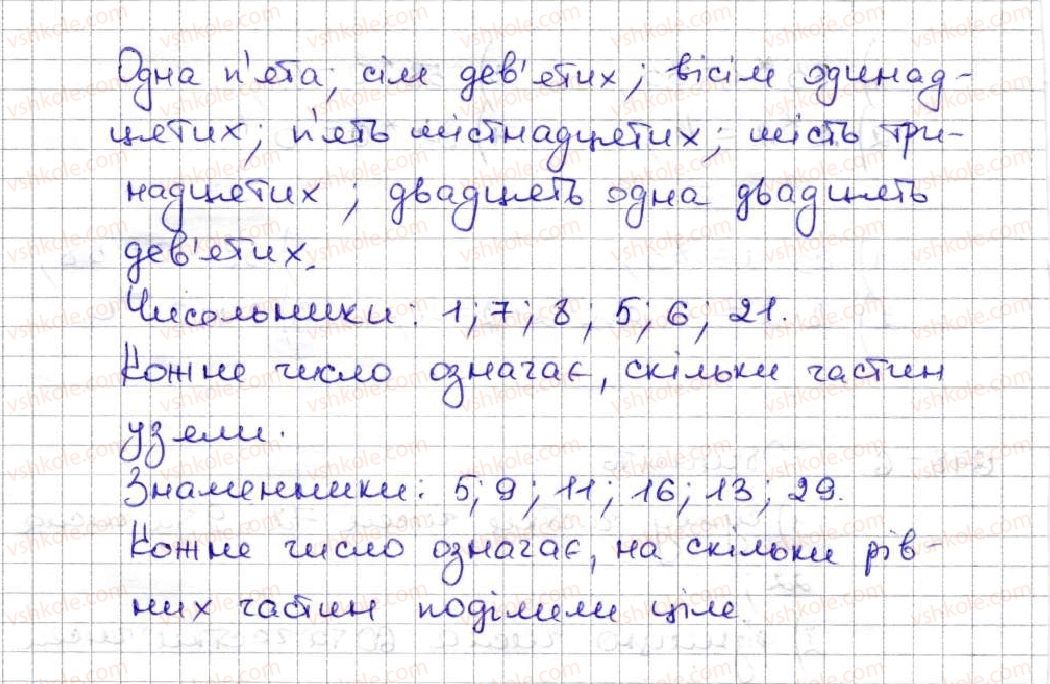 Одна п'ята; сім дев'ятих; вісім одинад-
цятих; п'ять шістнадцятих; шість три-
надцятих; двадцять одна двадцять
дев'ятих.
Чисельники: 1; 7; 8; 5; 6; 21.
Кожне число означає, скільки частин
узяли.
Знаменники: 5; 9; 11; 16; 13; 29.
Кожне число означає, на скільки рів-
них частин поділили ціле.
vshkole.com